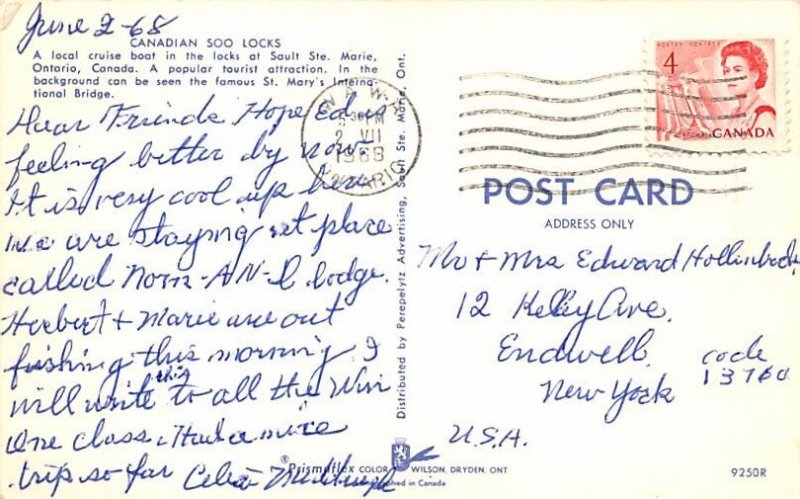 June 2-68
CANADIAN SOO LOCKS
A local cruise boat in the locks at Sault Ste. Marie,
Ontario, Canada. A popular tourist attraction. In the
background can be seen the famous St. Mary's Interna-
tional Bridge.
Dear Friends Hope Ed is
feeling better by now
It is very cool up here.
we are staying at place
called Norm-AN-L lodge.
Herbert + Marie are out
fishing this morning I
will write this to all the Win
One class. Had a nice
trip so far Celia
Distributed by Perepelytz Advertising, Sault Ste. Marie, Ont.
WAWA
PM
2 VII
1968
ONTARIO
4
POSTES POSTAGE
CANADA
POST CARD
ADDRESS ONLY
Mr + Mrs Edward Hollenbeck
12 Kelly Ave.
Endwell
code
13760
New York
U.S.A.
®Prismaflex COLOR WILSON, DRYDEN, ONT
in Canada
9250R